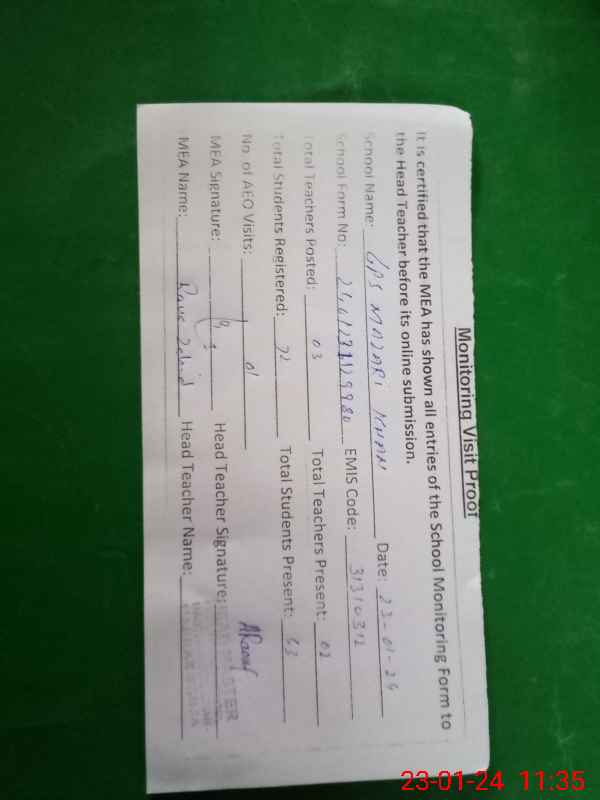 Monitoring Visit Proof
It is certified that the MEA has shown all entries of the School Monitoring Form to
the Head Teacher before its online submission.
School Name: GPS MAZARI KHAN Date: 23-01-24
School Form No: EMIS Code: 31310312
Total Teachers Posted: 03 Total Teachers Present: 02
Total Students Registered: 72 Total Students Present: 63
No. of AEO Visits: 01
MEA Signature: Head Teacher Signature:
MEA Name: Head Teacher Name:
23-01-24 11:35